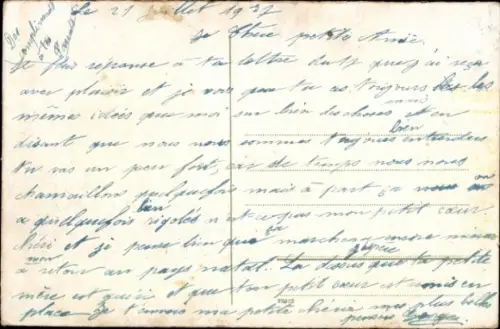 Des
compliments
à tes
Parents
Le 21 Juillet 1932
Chère petite Amie
Je fais reponse à ta lettre dont que j'ai reçu
avec plaisir et je vois que tu as toujours les
même idées que moi sur bien des choses mais en
disant que nous nous sommes toujours bien entendu
tu vas un peu fort, car de temps nous nous
chamaillons quelquefois mais à part ça on
a quelquefois bien rigolés n'est ce pas mon petit cœur
chéri et je pense bien que ça marchera encore mieux
mon
à retour au pays natal. La dessus que ta petite
mère est guérie et que ton petit cœur est remis en
place je t'envois ma petite chérie mes plus belles
pensées